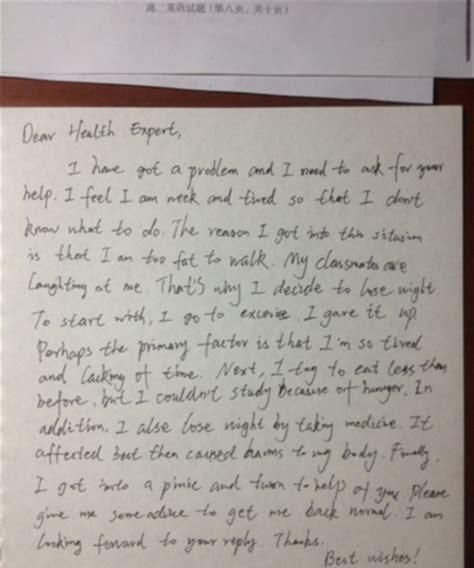 高二英语试题(第八页、共十页)
Dear Health Expert,
I have got a problem and I need to ask for your
help. I feel I am week and tired so that I don't
know what to do. The reason I got into this situsion
is that I am too fat to walk. My classmates are
laughting at me. That's why I decide to lose wight.
To start with, I go to excerise. I gave it up.
Perhaps the primary factor is that I'm so tired
and lacking of time. Next, I try to eat less than
before, but I couldn't study because of hunger. In
addition, I alse lose wight by taking medicine. It
affected but then caused harms to my body. Finally,
I got into a pinic and turn to help of you. Please
give me some advice to get me back normal. I am
looking forward to your reply. Thanks.
Best wishes!